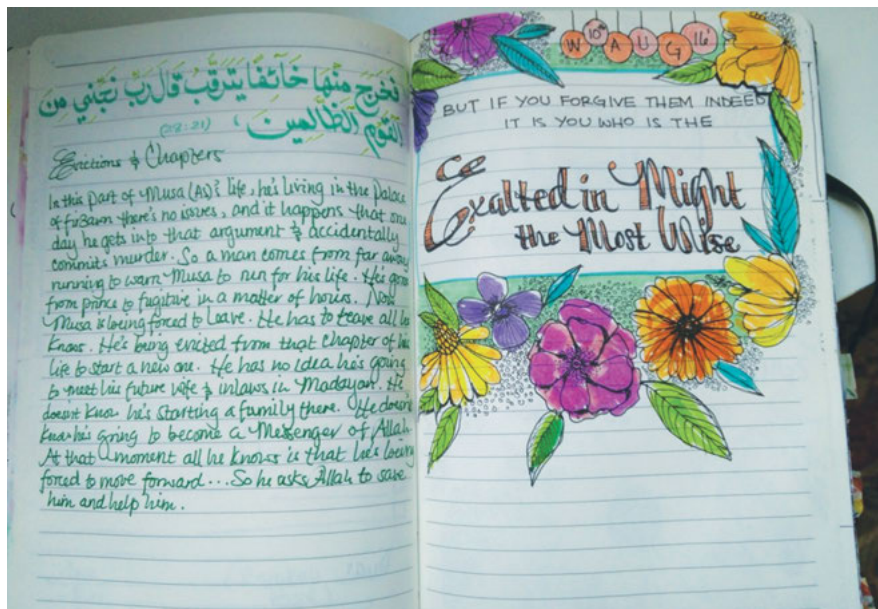 فَخَرَجَ مِنْهَا خَائِفًا يَتَرَقَّبُ قَالَ رَبِّ نَجِّنِي مِنَ
الْقَوْمِ الظَّالِمِينَ ،
(28:21)
Evictions & Chapters
In this part of Musa (As)'s life, he's living in the palace
of fir3awn there's no issues, and it happens that one
day he gets into that argument & accidentally
commits murder. So a man comes from far away
running to warn Musa to run for his life. He's gone
from prince to fugitive in a matter of hours. Now
Musa is being forced to leave. He has to leave all he
knows. He's being evicted from that chapter of his
life to start a new one. He has no idea he's going
to meet his future wife & inlaws in Madayan. He
doesnt know he's starting a family there. He doesn't
know he's going to become a Messenger of Allah.
At that moment all he knows is that he's being
forced to move forward... So he asks Allah to save
him and help him.
W 10th AUG 16'
BUT IF YOU FORGIVE THEM INDEED
IT IS YOU WHO IS THE
Exalted in Might
the Most Wise